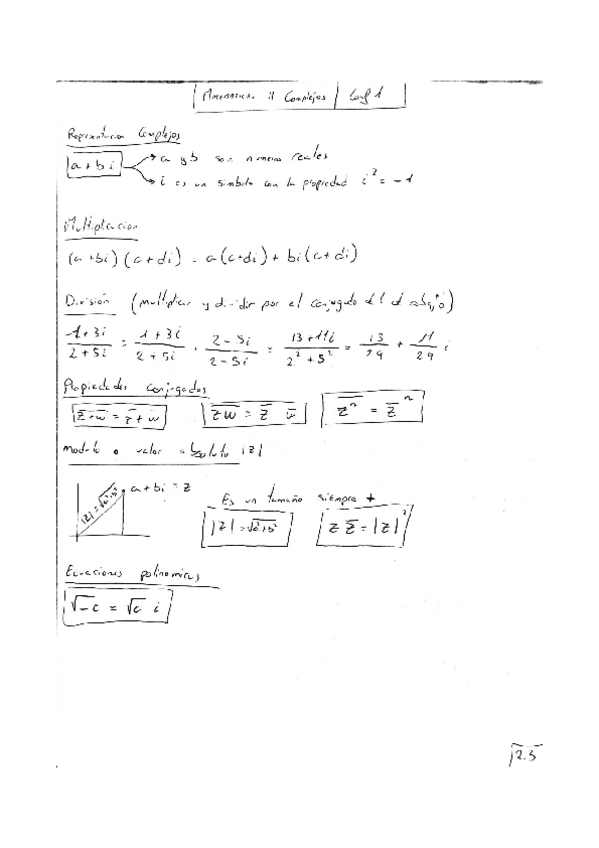 Complejos
Representacion Complejos
a + b i
a y b son numeros reales
i es un simbolo con la propiedad i² = -1
Multiplicacion
(a + bi) (c + di) = a(c+di) + bi(c+di)
División (multiplicar y dividir por el conjugado del de abajo)
-1+3i / 2+5i = 1+3i / 2+5i · 2-5i / 2-5i = 13+11i / 2²+5² = 13/29 + 11/29 i
Propiedades conjugados
z̅+̅w̅ = z̅ + w̅
z̅w̅ = z̅ w̅
z̅ⁿ̅ = z̅ⁿ
modulo o valor absoluto |z|
a + bi = z
|z| = √a²+b²
Es un tamaño siempre +
|z| = √a²+b²
z z̅ = |z|²
Ecuaciones polinomicas
√-c = √c i